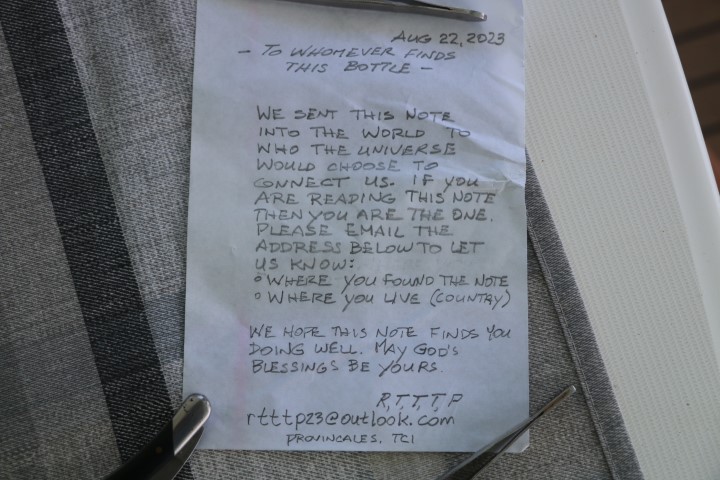 AUG 22, 2023
- TO WHOMEVER FINDS
THIS BOTTLE -
WE SENT THIS NOTE
INTO THE WORLD TO
WHO THE UNIVERSE
WOULD CHOOSE TO
CONNECT US. IF YOU
ARE READING THIS NOTE
THEN YOU ARE THE ONE.
PLEASE EMAIL THE
ADDRESS BELOW TO LET
US KNOW:
° WHERE YOU FOUND THE NOTE
° WHERE YOU LIVE (COUNTRY)
WE HOPE THIS NOTE FINDS YOU
DOING WELL. MAY GOD'S
BLESSINGS BE YOURS.
R,T,T,T,P
rtttp23@outlook.com
PROVINCALES, TCI